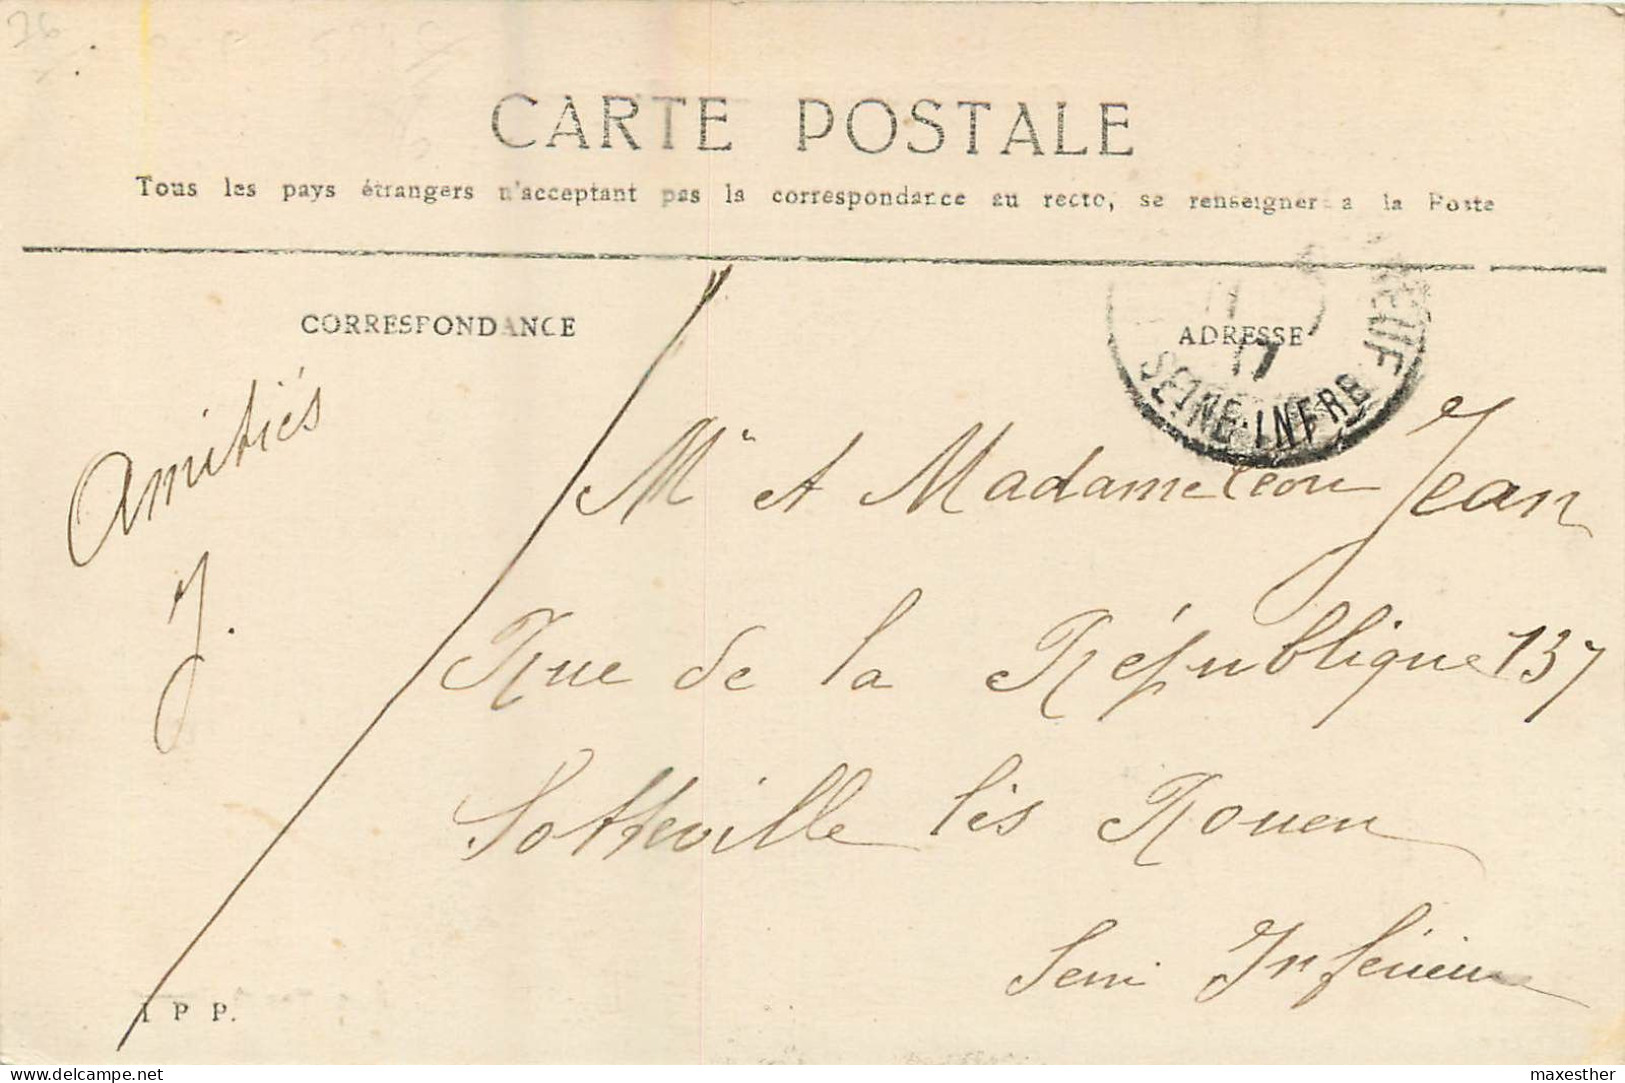 76
CARTE POSTALE
Tous les pays étrangers n'acceptant pas la correspondance au recto, se renseigner a la Poste
CORRESPONDANCE
ADRESSE
17
SEINE-INFRE
Amitiés
J.
Mr et Madame Léon Jean
Rue de la République 137
Sotteville lès Rouen
Seine Inférieure
I P P.
delcampe.net
maxesther